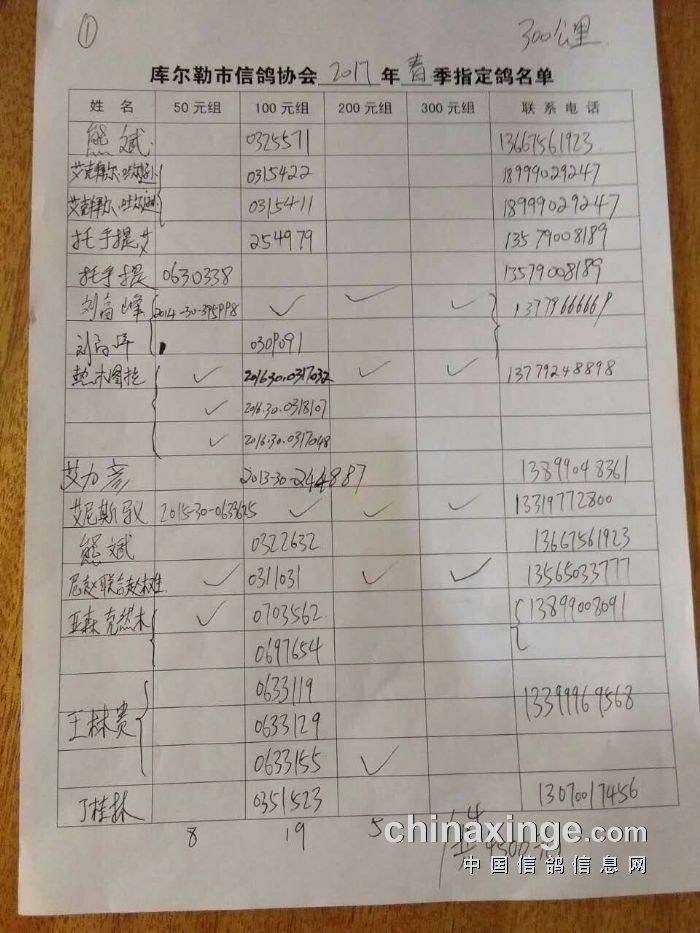 ① 300公里
库尔勒市信鸽协会 2017 年 春 季指定鸽名单
姓 名 50元组 100元组 200元组 300元组 联系电话
熊斌 0325571 13667561923
0315422 18999029247
0315411 18999029247
托乎提艾 254979 13579008189
托乎提 0630338 13579008189
刘高峰 2014-30-395998 ✓ ✓ ✓ 13779666669
刘高峰 0309091
热木图拉 ✓ 2016.30.0317032 ✓ ✓ 13779248898
✓ 2016.30.0318107
✓ 2016.30.0317048
艾力彦 2013-30-244887 13899048361
艾尼斯 2015-30-0633625 ✓ ✓ ✓ 13319772800
熊斌 0322632 13667561923
✓ 0311031 ✓ ✓ 13565033777
亚森克然木 ✓ 0703562 13899008091
0697654
0633119
王林贵 0633129 13399969568
0633155 ✓
丁桂林 0351523 13070017456
8 19 5 4
chinaxinge.com
中国信鸽信息网